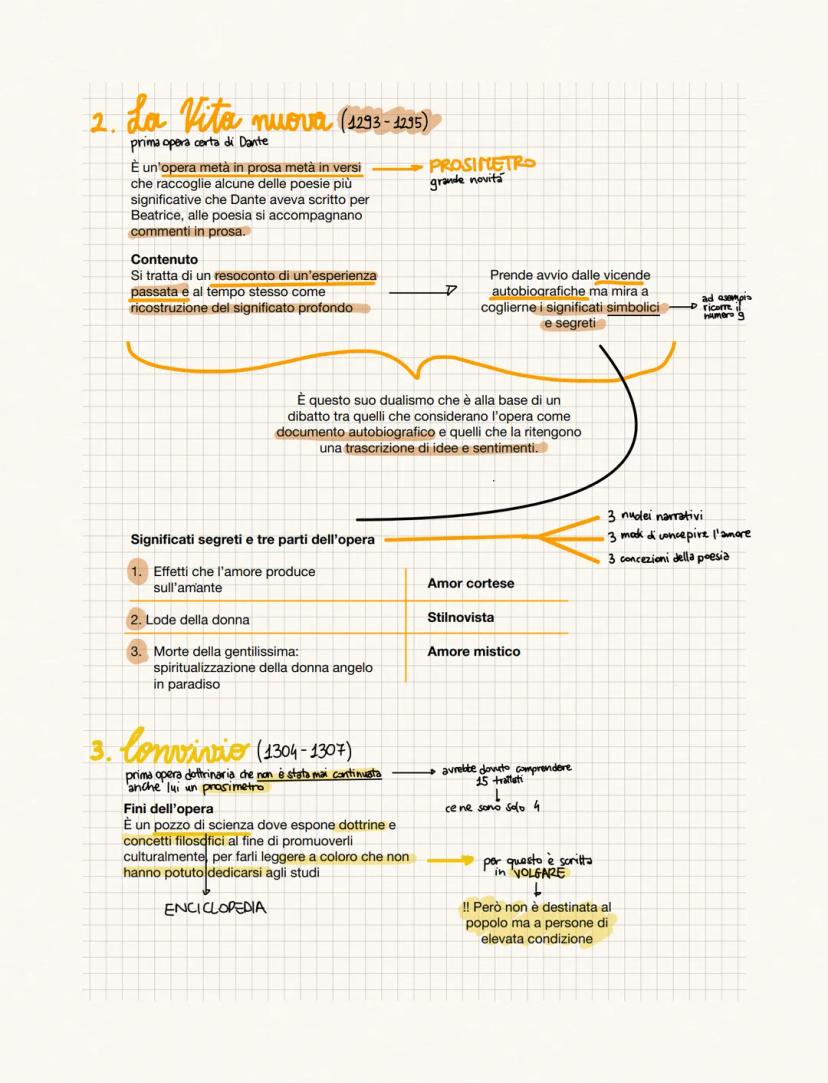 2. La Vita nuova (1293-1295)
prima opera certa di Dante
È un'opera metà in prosa metà in versi
PROSIMETRO
grande novità
che raccoglie alcune delle poesie più
significative che Dante aveva scritto per
Beatrice, alle poesia si accompagnano
commenti in prosa.
Contenuto
Si tratta di un resoconto di un'esperienza
passata e al tempo stesso come
ricostruzione del significato profondo
Prende avvio dalle vicende
autobiografiche ma mira a
coglierne i significati simbolici
e segreti
ad esempio
ricorre il
numero 9
È questo suo dualismo che è alla base di un
dibatto tra quelli che considerano l'opera come
documento autobiografico e quelli che la ritengono
una trascrizione di idee e sentimenti.
Significati segreti e tre parti dell'opera
3 nuclei narrativi
3 modi di concepire l'amore
3 concezioni della poesia
1. Effetti che l'amore produce
sull'amante
Amor cortese
2. Lode della donna
Stilnovista
3. Morte della gentilissima:
spiritualizzazione della donna angelo
in paradiso
Amore mistico
3. Convivio (1304-1307)
prima opera dottrinaria che non è stata mai continuata
anche lui un prosimetro
avrebbe dovuto comprendere
15 trattati
ce ne sono solo 4
Fini dell'opera
È un pozzo di scienza dove espone dottrine e
concetti filosofici al fine di promuoverli
culturalmente, per farli leggere a coloro che non
hanno potuto dedicarsi agli studi
ENCICLOPEDIA
per questo è scritta
in VOLGARE
!! Però non è destinata al
popolo ma a persone di
elevata condizione